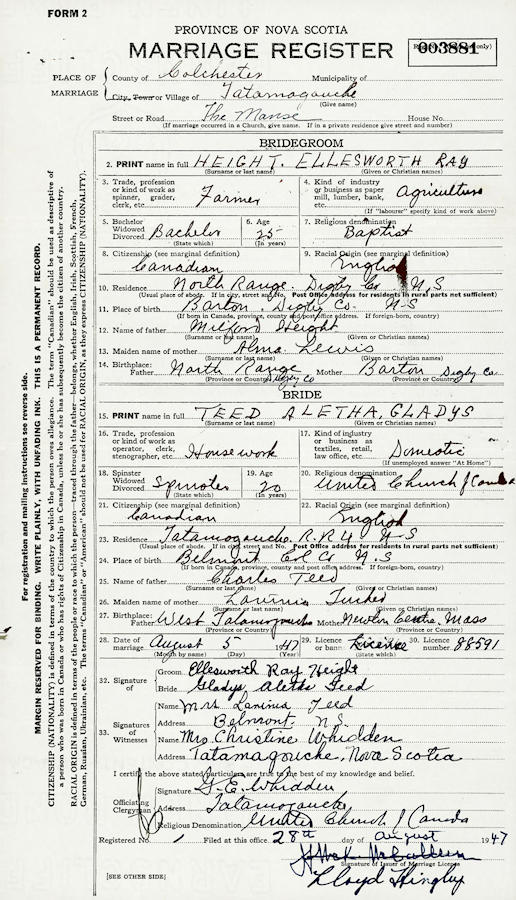 FORM 2
PROVINCE OF NOVA SCOTIA
MARRIAGE REGISTER
003881
PLACE OF MARRIAGE
County of Colchester Municipality of
City, Town or Village of Tatamagouche
(Give name)
Street or Road The Manse House No.
(If marriage occurred in a Church, give name. If in a private residence give street and number)
BRIDEGROOM
2. PRINT name in full HEIGHT. ELLESWORTH RAY
(Surname or last name) (Given or Christian names)
3. Trade, profession or kind of work as spinner, grader, clerk, etc. Farmer
4. Kind of industry or business as paper mill, lumber, bank, etc. Agriculture
(If "labourer" specify kind of work above)
5. Bachelor Widowed Divorced Bachelor
(State which)
6. Age 25
(In years)
7. Religious denomination Baptist
8. Citizenship (see marginal definition) Canadian
9. Racial Origin (see marginal definition) English
10. Residence North Range. Digby Co N,S
(Usual place of abode. If in city, street and No. Post Office address for residents in rural parts not sufficient)
11. Place of birth Barton. Digby Co. N-S
(If born in Canada, province, county and post office address. If foreign-born, country)
12. Name of father Milford Height
(Surname or last name) (Given or Christian names)
13. Maiden name of mother Alma Lewis
(Surname or last name) (Given or Christian names)
14. Birthplace: Father North Range Digby Co Mother Barton Digby Co.
(Province or Country) (Province or Country)
BRIDE
15. PRINT name in full TEED ALETHA, GLADYS
(Surname or last name) (Given or Christian names)
16. Trade, profession or kind of work as operator, clerk, stenographer, etc. Housework
17. Kind of industry or business as textiles, retail, law office, etc. Domestic
(If unemployed answer "At Home")
18. Spinster Widowed Divorced Spinster
(State which)
19. Age 20
(In years)
20. Religious denomination United Church of Canada
21. Citizenship (see marginal definition) Canadian
22. Racial Origin (see marginal definition) English
23. Residence Tatamagouche. R.R 4 N-S
(Usual place of abode. If in city, street and No. Post Office address for residents in rural parts not sufficient)
24. Place of birth Belmont Col Co N.S
(If born in Canada, province, county and post office address. If foreign-born, country)
25. Name of father Charles Teed
(Surname or last name) (Given or Christian names)
26. Maiden name of mother Lavinia Tucker
(Surname or last name) (Given or Christian names)
27. Birthplace: Father West Tatamagouche Mother Newton Centre, Mass
(Province or Country) (Province or Country)
28. Date of marriage August 5 1947
(Month by name) (Day) (Year)
29. Licence or banns License
(State which)
30. Licence number 88591
32. Signature of
Groom Ellesworth Ray Height
Bride Gladys Aletha Teed
33. Signatures of Witnesses
Name Mrs Lavinia Teed
Address Belmont N.S.
Name Mrs Christine Whidden
Address Tatamagouche, Nova Scotia
I certify the above stated particulars are true to the best of my knowledge and belief.
Officiating Clergyman
Signature G.E. Whidden
Address Tatamagouche
Religious Denomination United Church of Canada
Registered No. Filed at this office 28th day of August 1947
Signature of Issuer of Marriage Licence
[SEE OTHER SIDE]
For registration and mailing instructions see reverse side.
MARGIN RESERVED FOR BINDING. WRITE PLAINLY, WITH UNFADING INK. THIS IS A PERMANENT RECORD.
CITIZENSHIP (NATIONALITY) is defined in terms of the country to which the person owes allegiance. The term "Canadian" should be used as descriptive of
a person who was born in Canada or who has rights of Citizenship in Canada, unless he or she has subsequently become the citizen of another country.
RACIAL ORIGIN is defined in terms of the people or race to which the person—traced through the father—belongs, whether English, Irish, Scottish, French,
German, Russian, Ukrainian. etc. The terms "Canadian" or "American" should not be used for RACIAL ORIGIN, as they express CITIZENSHIP (NATIONALITY).